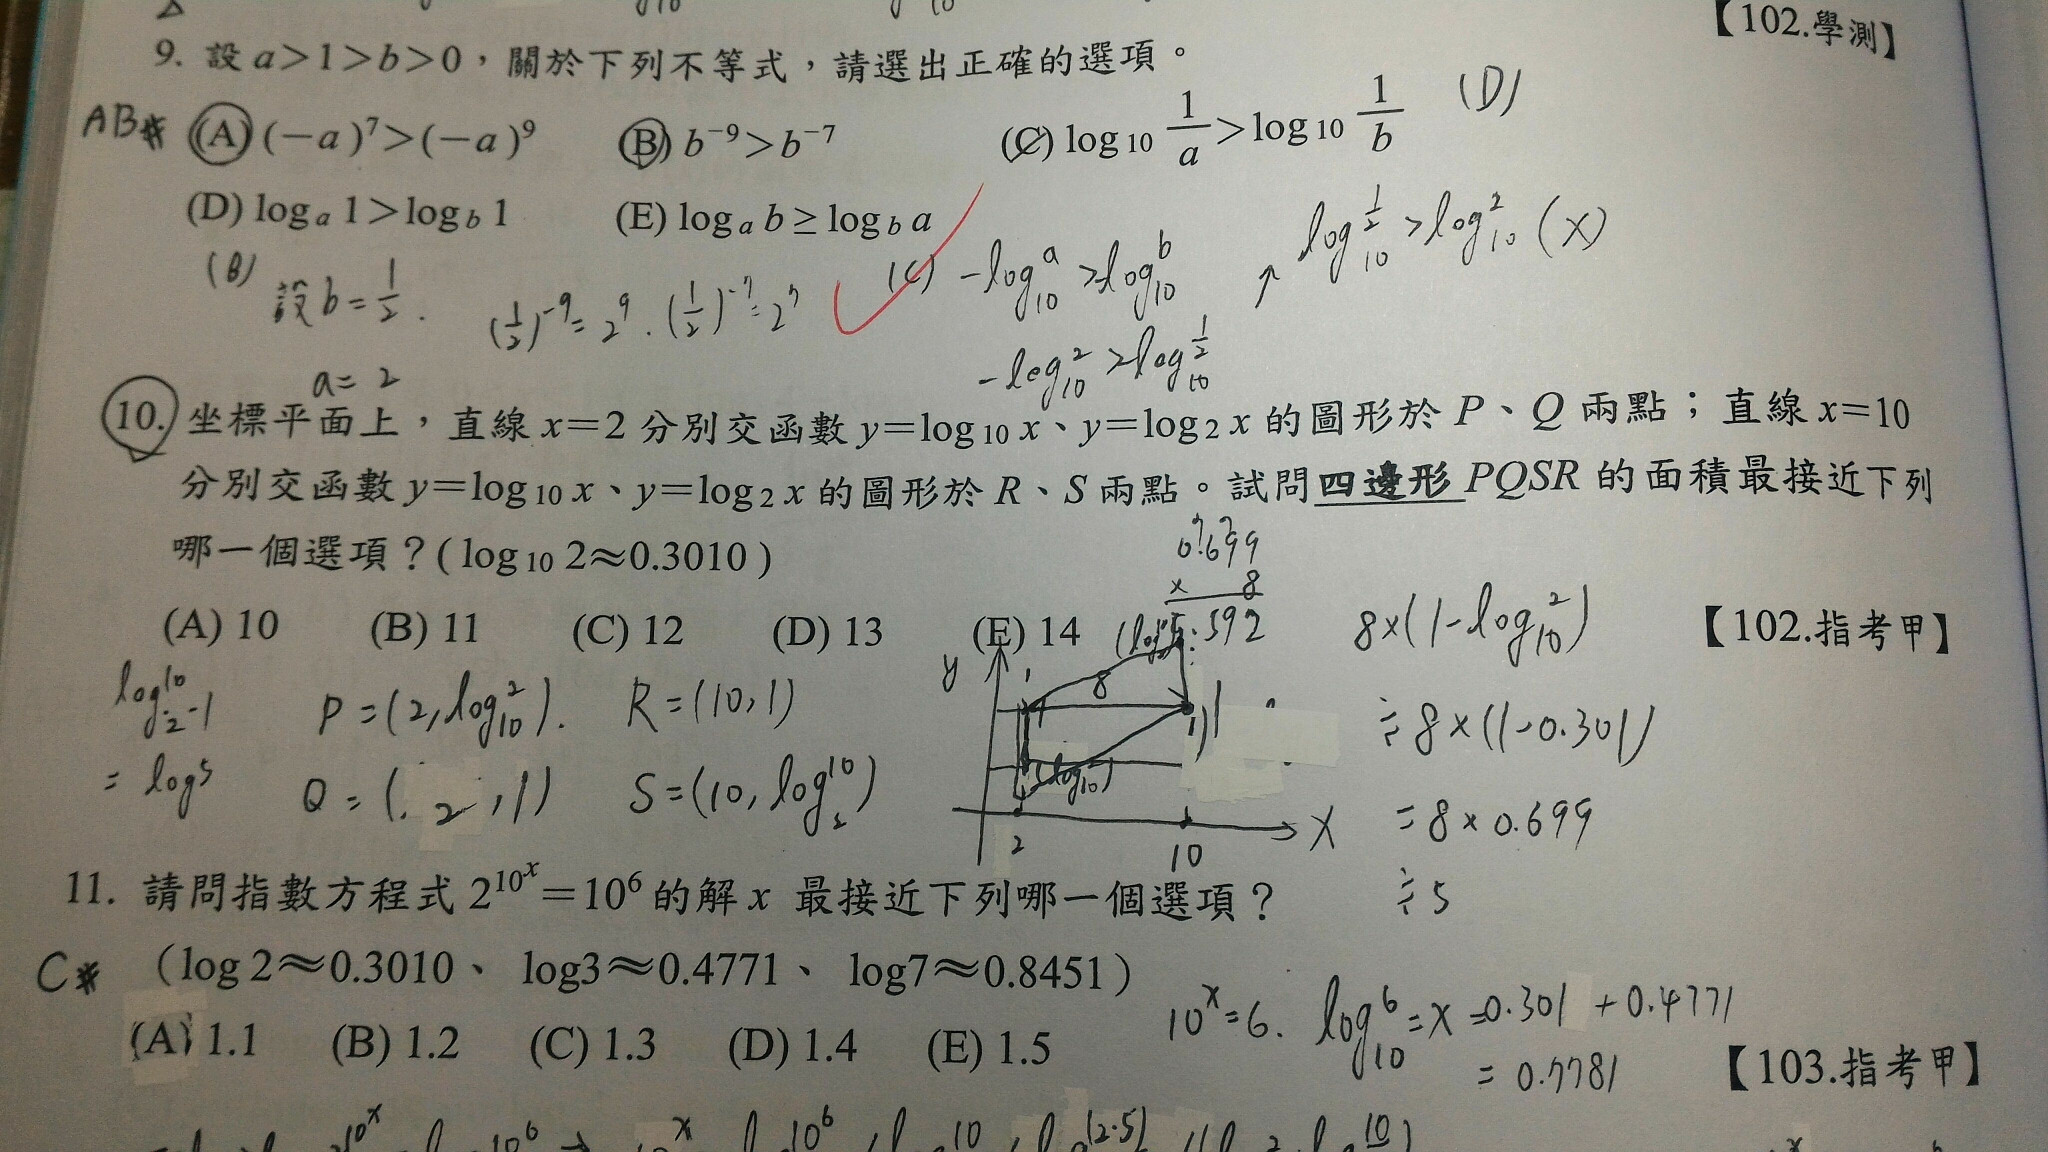 【102.學測】
9. 設 a>1>b>0，關於下列不等式，請選出正確的選項。
AB# (A) (−a)⁷>(−a)⁹ (B) b⁻⁹>b⁻⁷ (C) log₁₀ 1/a > log₁₀ 1/b (D)
(D) logₐ 1>log_b 1 (E) logₐ b ≥ log_b a
log₁₀ 1/2 > log₁₀ 2 (X)
(B) 設 b = 1/2 . (1/2)⁻⁹ = 2⁹ . (1/2)⁻⁷ = 2⁷ (C) −log₁₀ a > log₁₀ b
a = 2 −log₁₀ 2 > log₁₀ 1/2
10. 坐標平面上，直線 x=2 分別交函數 y=log₁₀ x、y=log₂ x 的圖形於 P、Q 兩點；直線 x=10
分別交函數 y=log₁₀ x、y=log₂ x 的圖形於 R、S 兩點。試問四邊形 PQSR 的面積最接近下列
哪一個選項？( log₁₀ 2≈0.3010 )
0.699
× 8
5.592
(A) 10 (B) 11 (C) 12 (D) 13 (E) 14
【102.指考甲】
8×(1−log₁₀ 2)
≑ 8×(1−0.301)
= 8×0.699
≑ 5
log₂ 10 −1
= log 5
P = (2, log₁₀ 2). R = (10, 1)
Q = (2, 1) S = (10, log₂ 10)
y 8 1
(log₁₀ 2)
2 10 x
11. 請問指數方程式 2^(10^x) = 10⁶ 的解 x 最接近下列哪一個選項？
C# （log 2≈0.3010、 log3≈0.4771、 log7≈0.8451）
(A) 1.1 (B) 1.2 (C) 1.3 (D) 1.4 (E) 1.5
10ˣ = 6. log₁₀ 6 = x = 0.301 + 0.4771
= 0.7781
【103.指考甲】